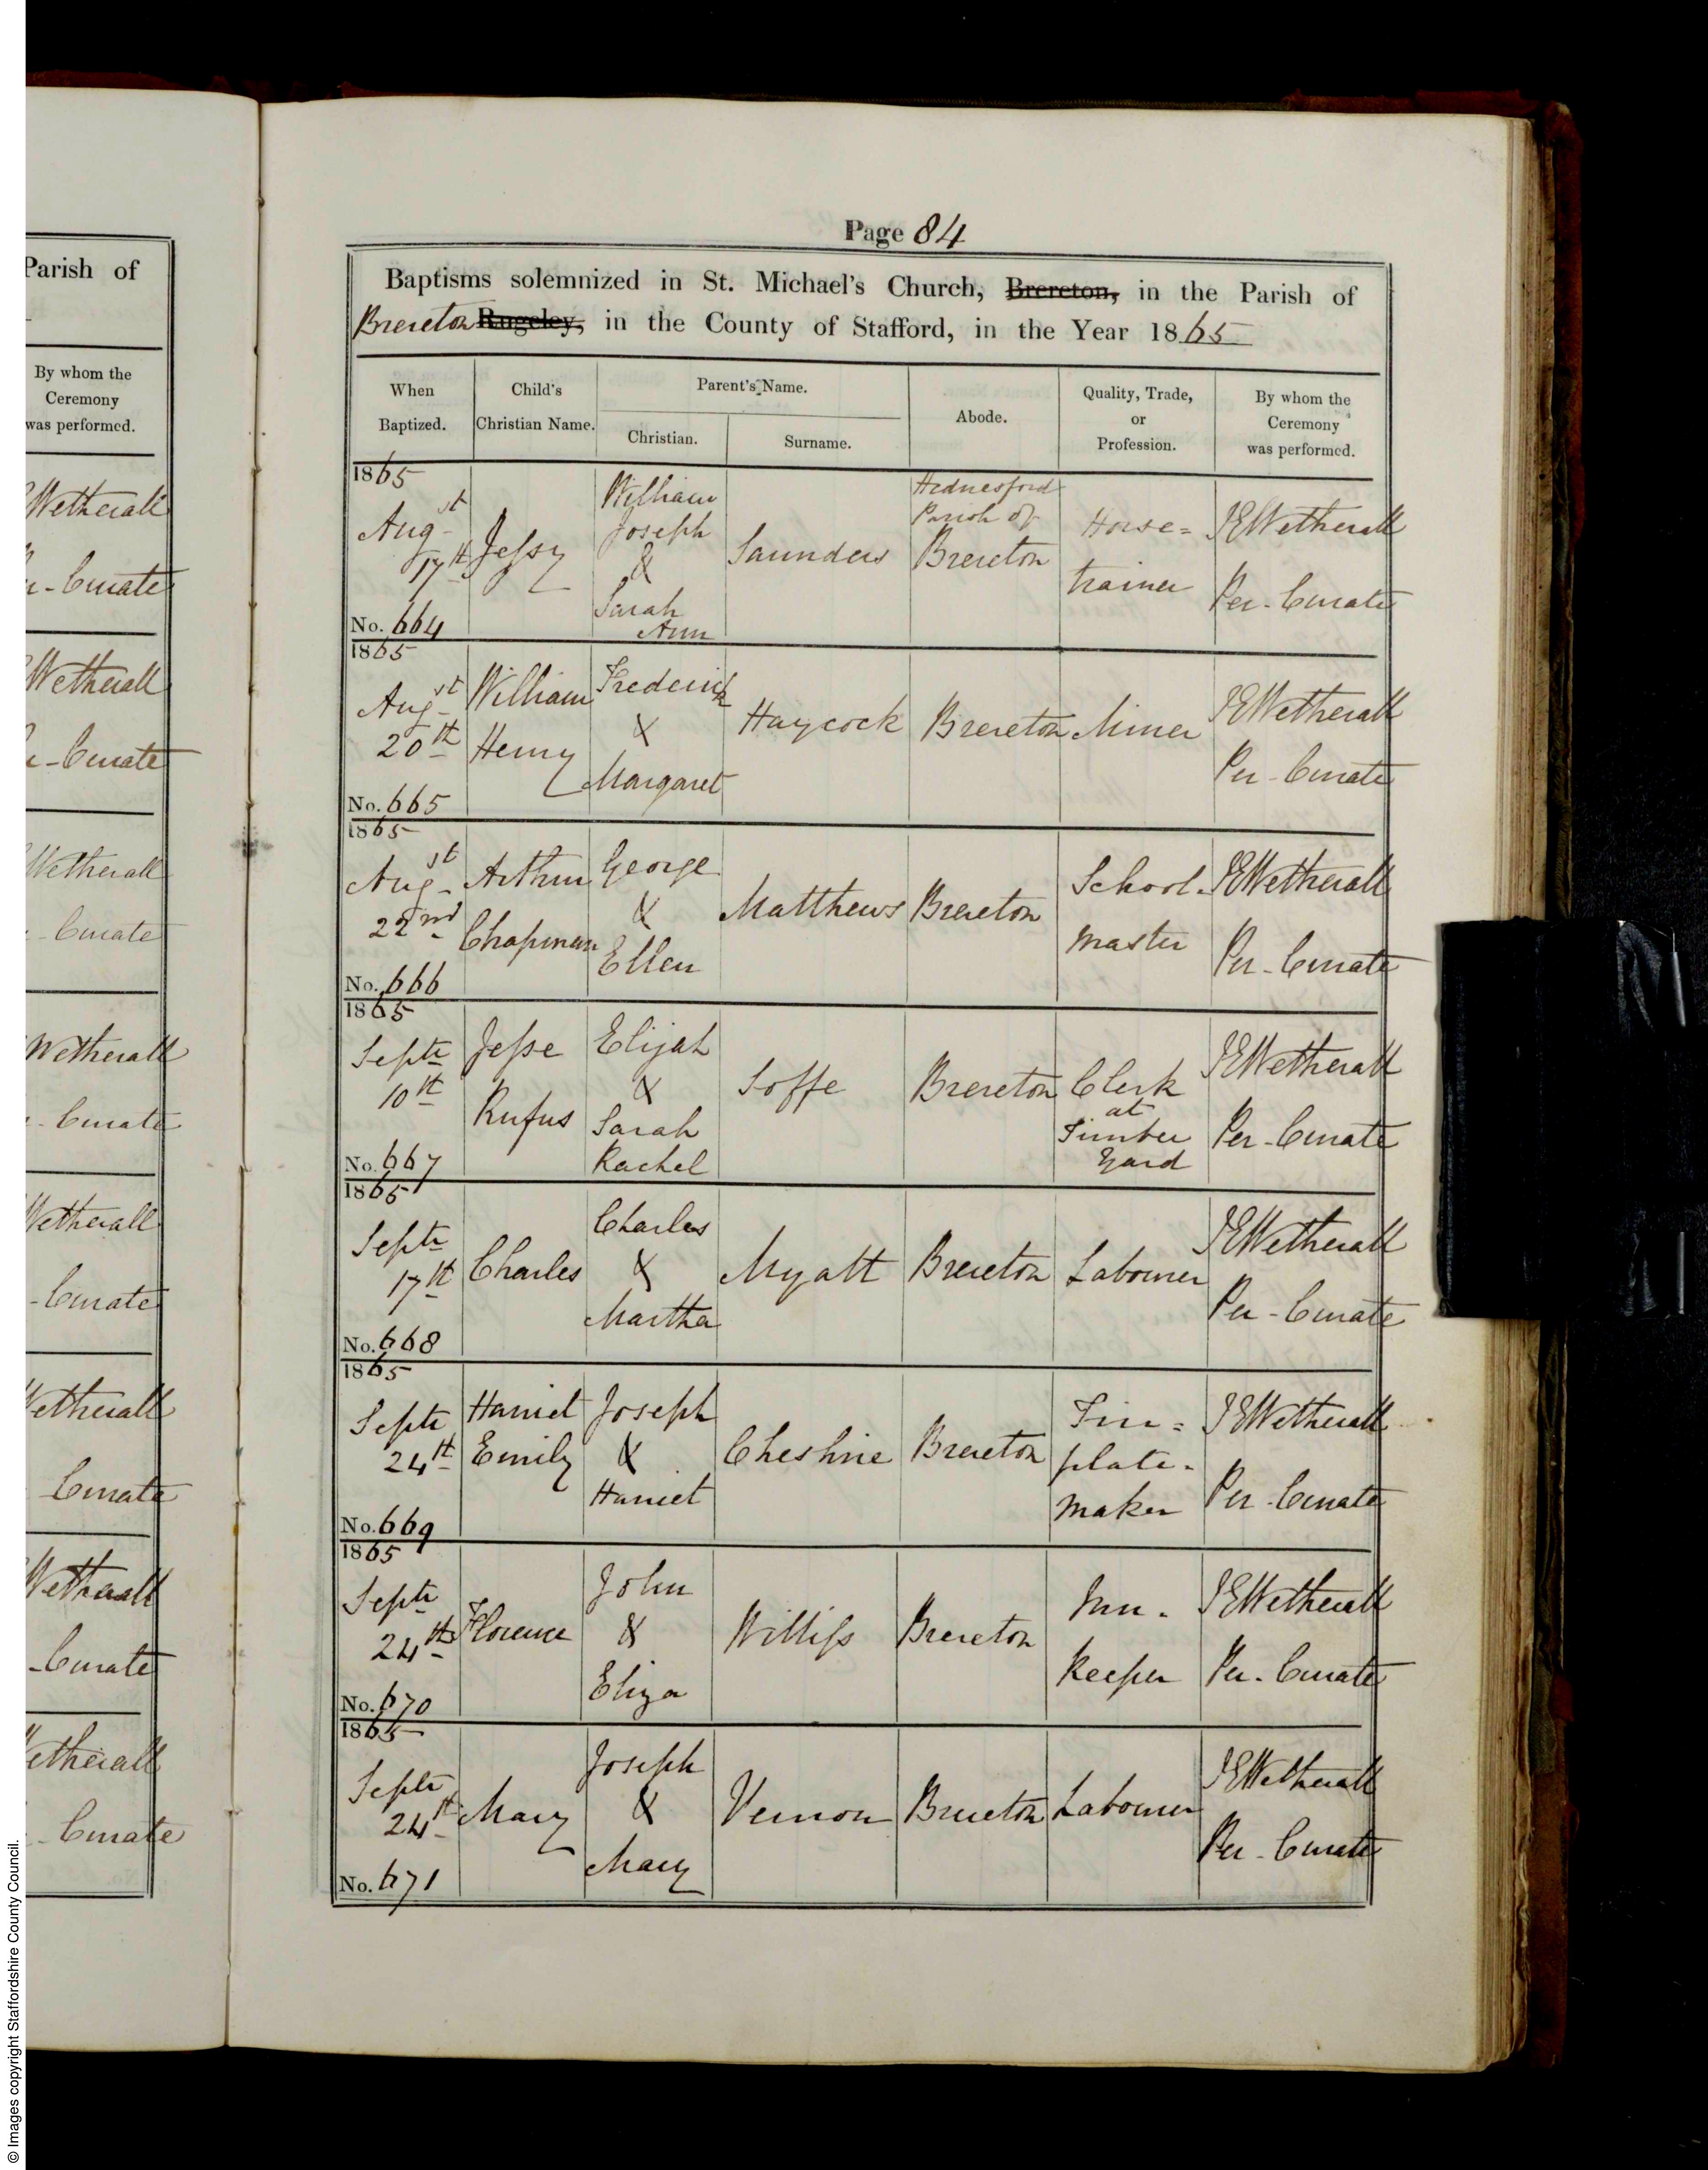 Parish of
By whom the
Ceremony
was performed.
Wetherall
Curate
Wetherall
Curate
Wetherall
Curate
Wetherall
Curate
Wetherall
Curate
Wetherall
Curate
Wetherall
Curate
Wetherall
Curate
Page 84
Baptisms solemnized in St. Michael's Church, Brereton, in the Parish of
Brereton Rugeley, in the County of Stafford, in the Year 1865
When Baptized.
Child's Christian Name.
Parent's Name.
Christian.
Surname.
Abode.
Quality, Trade, or Profession.
By whom the Ceremony was performed.
1865
Augst
17th
No. 664
Jessy
William
Joseph
&
Sarah
Ann
Saunders
Hednesford
Parish of
Brereton
Horse=
trainer
JEWetherall
Per-Curate
1865
Augst
20th
No. 665
William
Henry
Frederick
&
Margaret
Haycock
Brereton
Miner
JEWetherall
Per-Curate
1865
Augst
22nd
No. 666
Arthur
Chapman
George
&
Ellen
Matthews
Brereton
School-
master
JEWetherall
Per-Curate
1865
Septr
10th
No. 667
Jesse
Rufus
Elijah
&
Sarah
Rachel
Soffe
Brereton
Clerk
at
Timber
Yard
JEWetherall
Per-Curate
1865
Septr
17th
No. 668
Charles
Charles
&
Martha
Myatt
Brereton
Labourer
JEWetherall
Per-Curate
1865
Septr
24th
No. 669
Harriet
Emily
Joseph
&
Harriet
Cheshire
Brereton
Tin=
plate-
maker
JEWetherall
Per-Curate
1865
Septr
24th
No. 670
Florence
John
&
Eliza
Williss
Brereton
Inn-
keeper
JEWetherall
Per-Curate
1865
Septr
24th
No. 671
Mary
Joseph
&
Mary
Vernon
Brereton
Labourer
JEWetherall
Per-Curate
© Images copyright Staffordshire County Council.